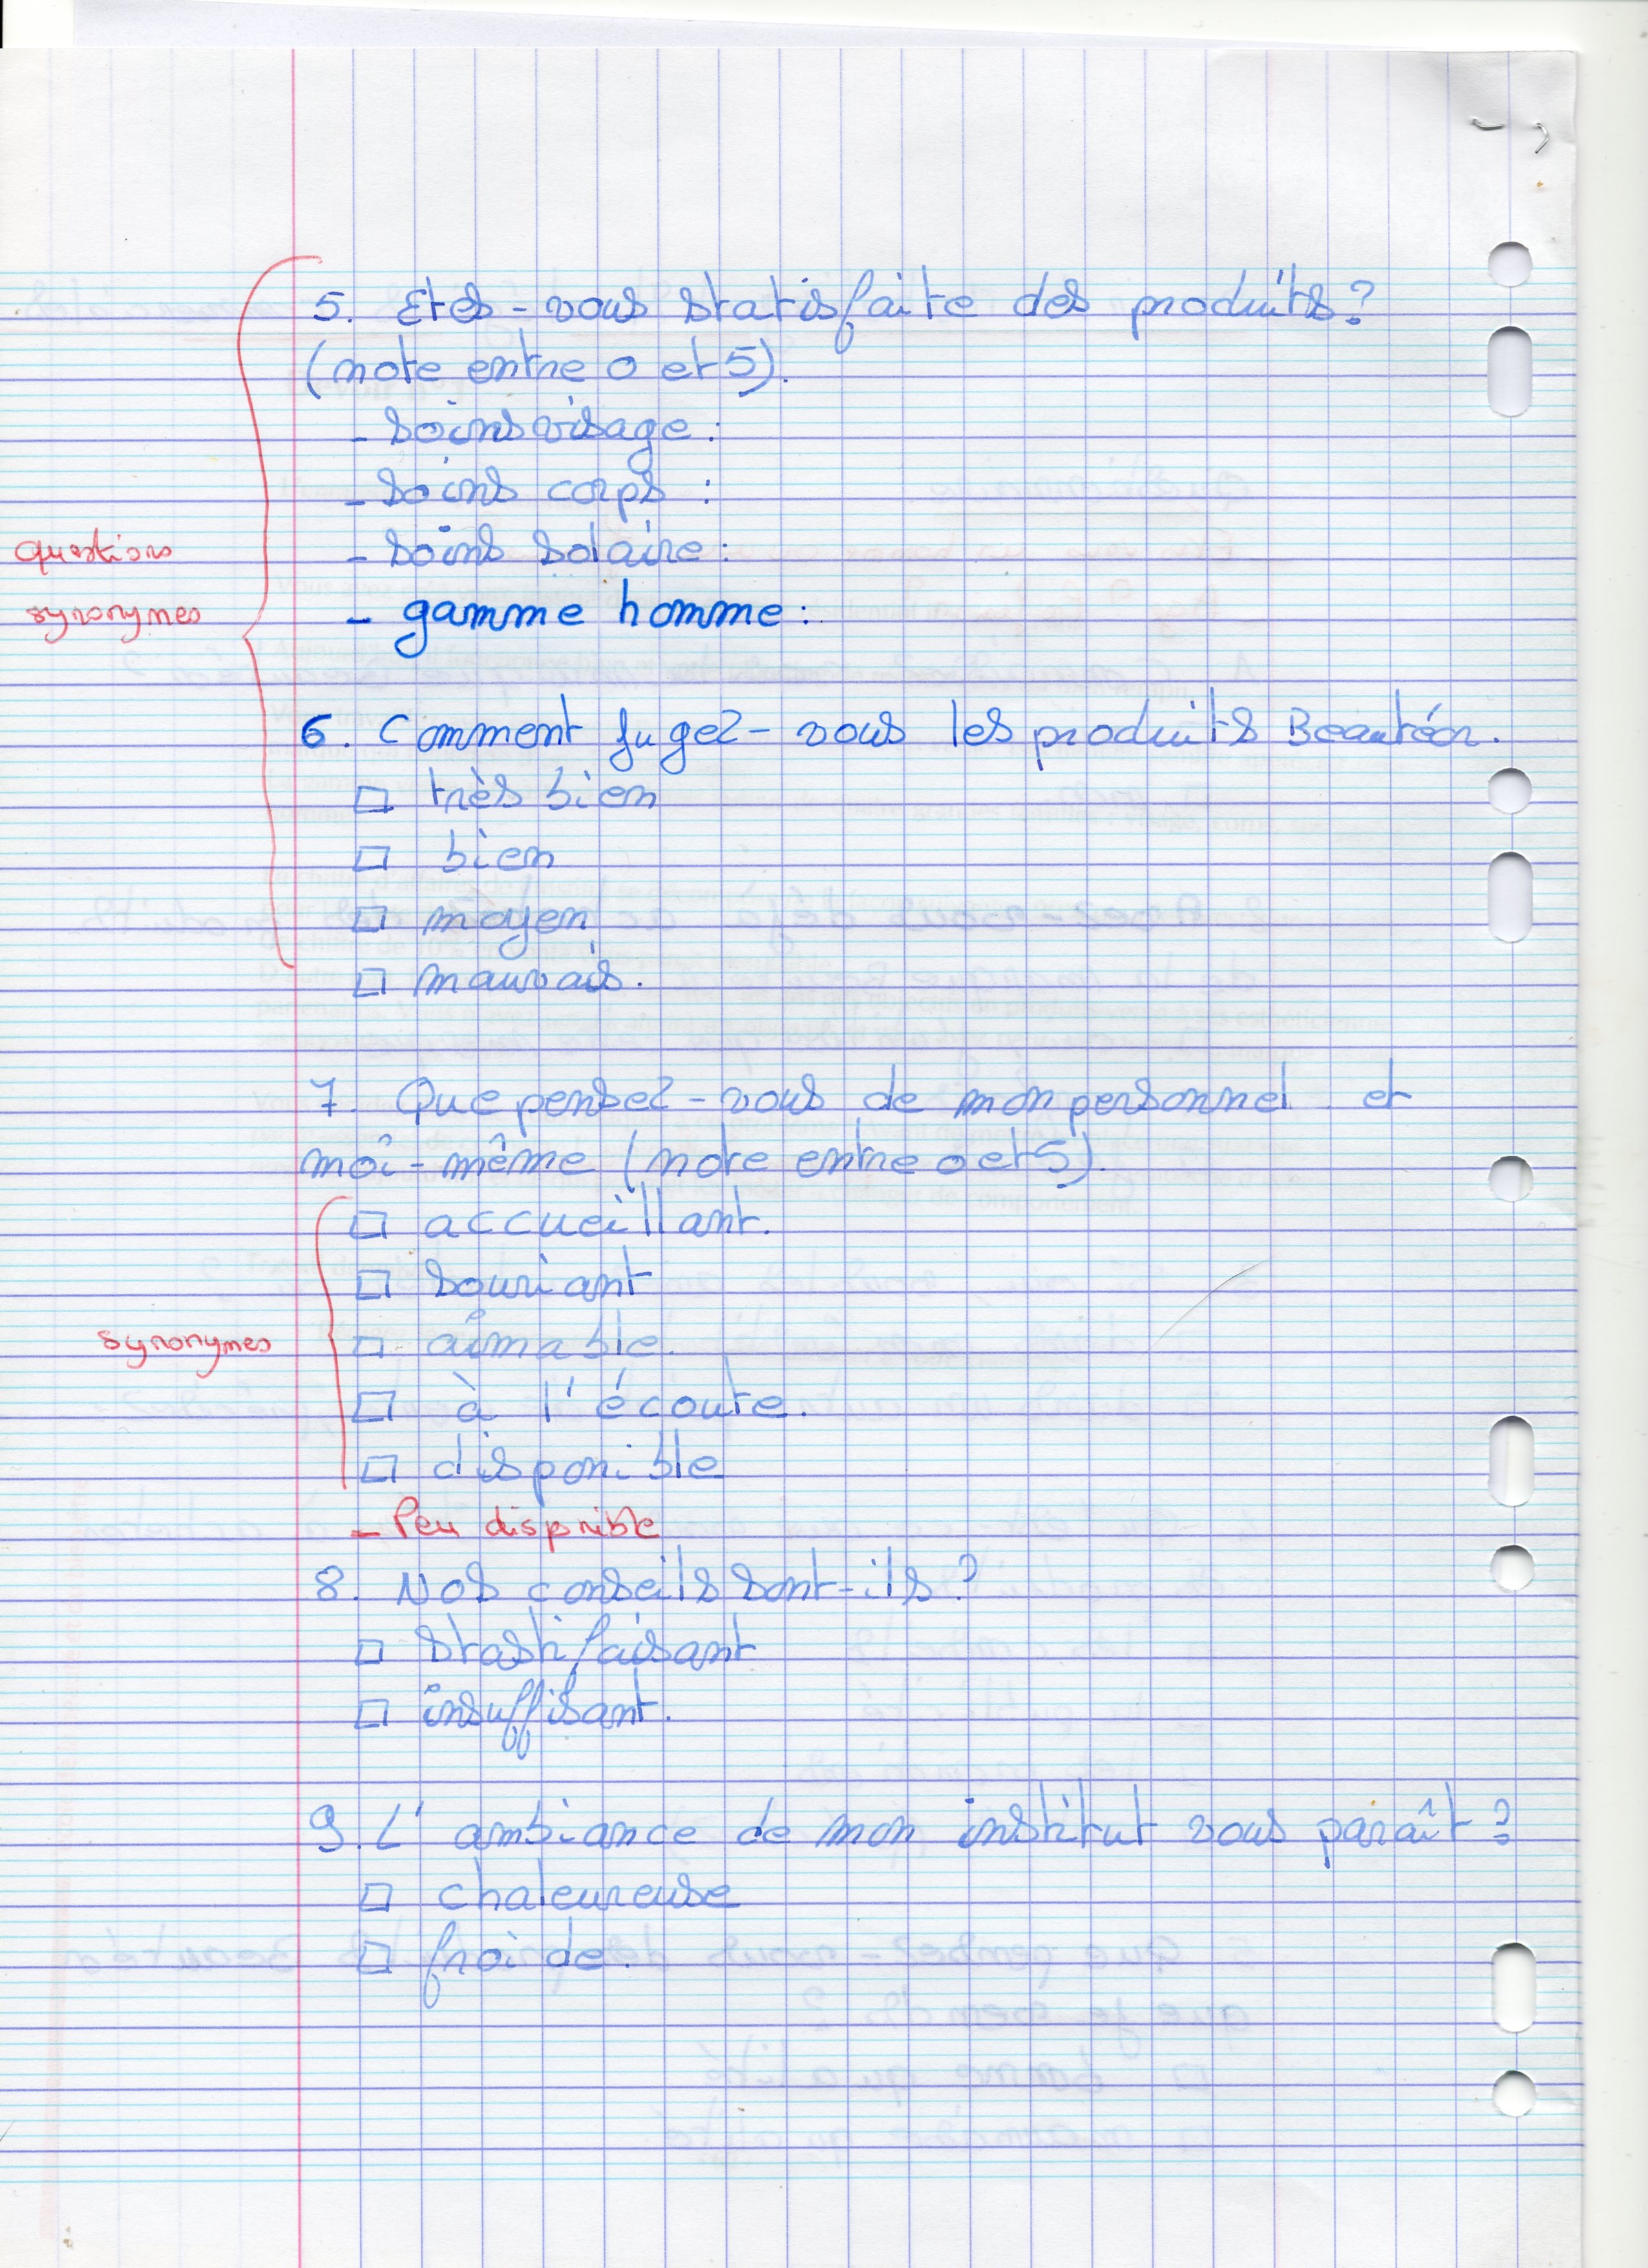 5. Etes-vous statisfaite des produits?
(note entre 0 et 5).
- soins visage :
- soins corps :
- soins solaire :
questions
synonymes
- gamme homme :
6. Comment jugez-vous les produits Beautéor.
□ très bien
□ bien
□ moyen
□ mauvais.
7. Que pensez-vous de mon personnel et
moi-même (note entre 0 et 5).
□ accueillant.
□ souriant
synonymes
□ aimable.
□ à l'écoute.
□ disponible
- Peu disponible
8. Nos conseils sont-ils?
□ stastifaisant
□ insuffisant.
9. L'ambiance de mon institut vous paraît?
□ chaleureuse
□ froide.